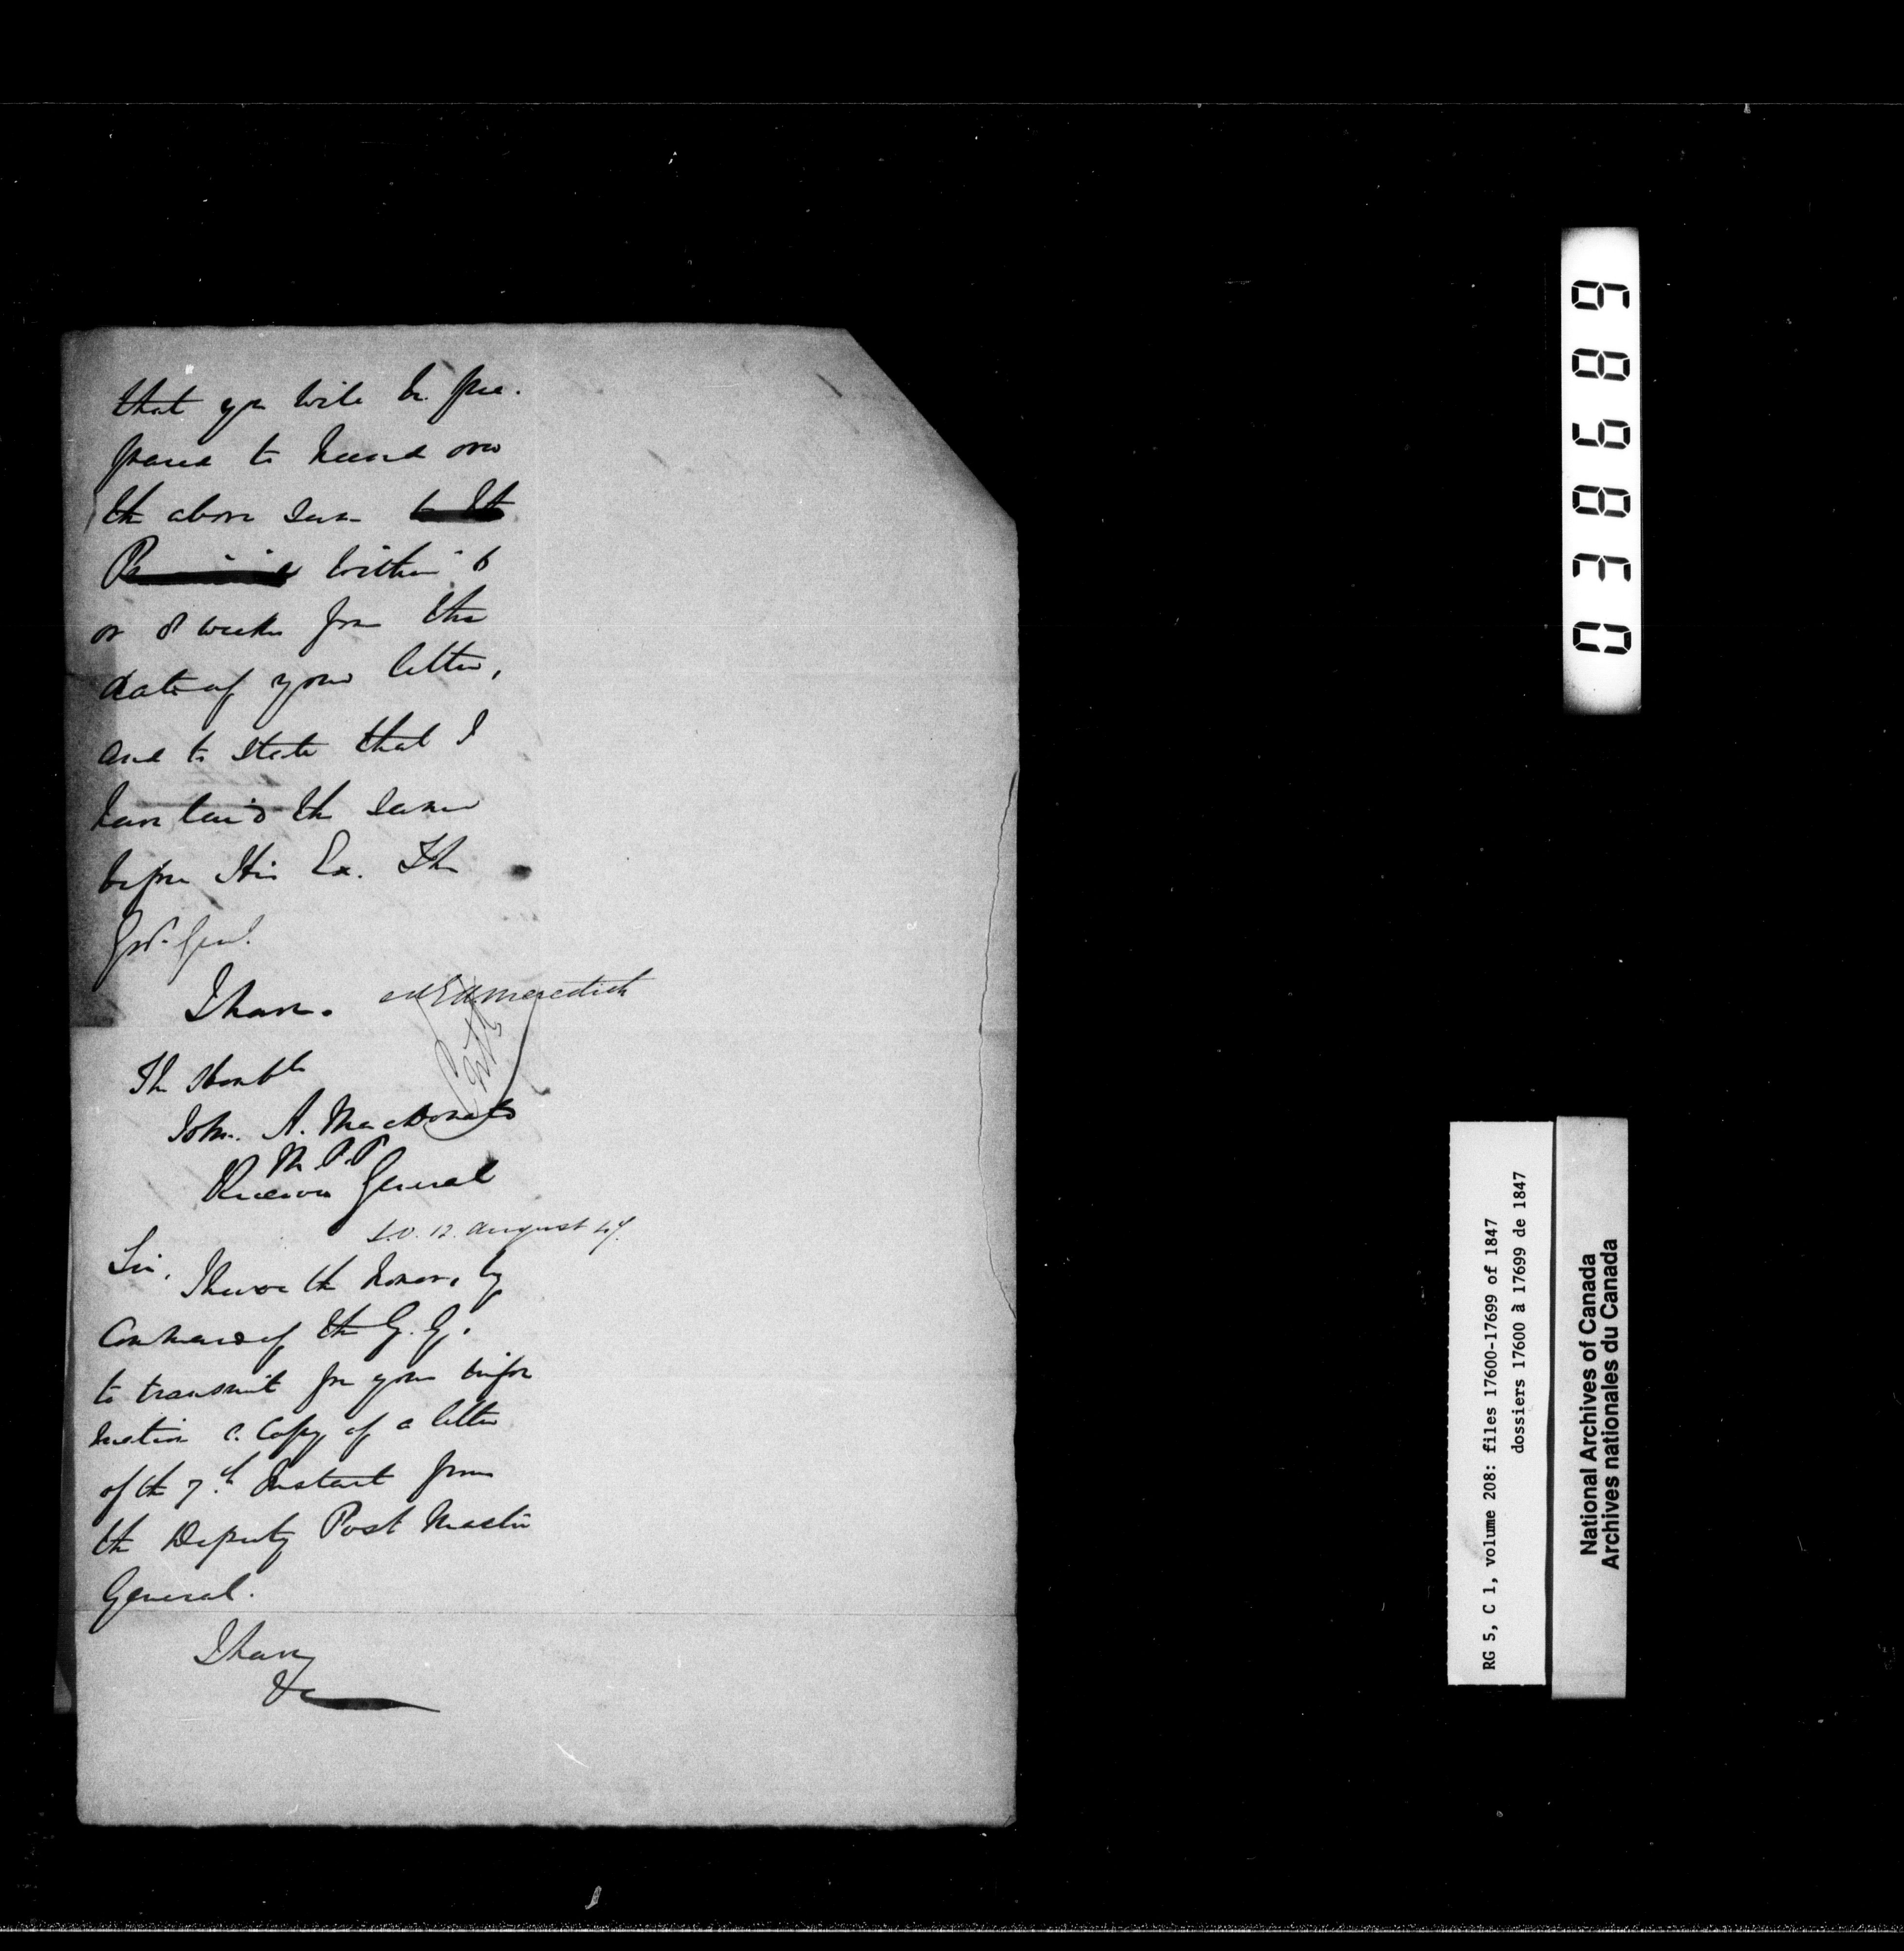 that you will be pre-
pared to hand over
the above sum to the
Province within 6
or 8 weeks from the
date of your letter,
and to state that I
have laid the same
before His Ex. The
Govr. Genl.
I have.
E A Meredith
The Honble
John. A. MacDonald
M.P.P
Receiver General
S.O. 12. August 47.
Sir,
I have the honor, by
Command of the G. G.
to transmit for your infor
mation a Copy of a letter
of the 7th Instant from
the Deputy Post Master
General.
I have
&c
038689
RG 5, C 1, volume 208: files 17600-17699 of 1847
dossiers 17600 à 17699 de 1847
National Archives of Canada
Archives nationales du Canada